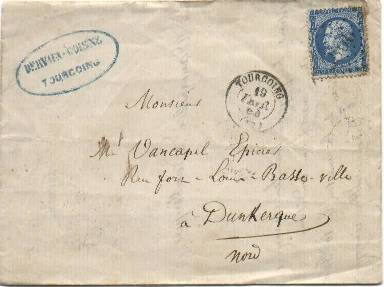 DERVAUX-COISNE
TOURCOING
TOURCOING
19
FEVR
65
Monsieur
Vancapel Epicier
Rue fort Louis Basse-ville
à Dunkerque
Nord